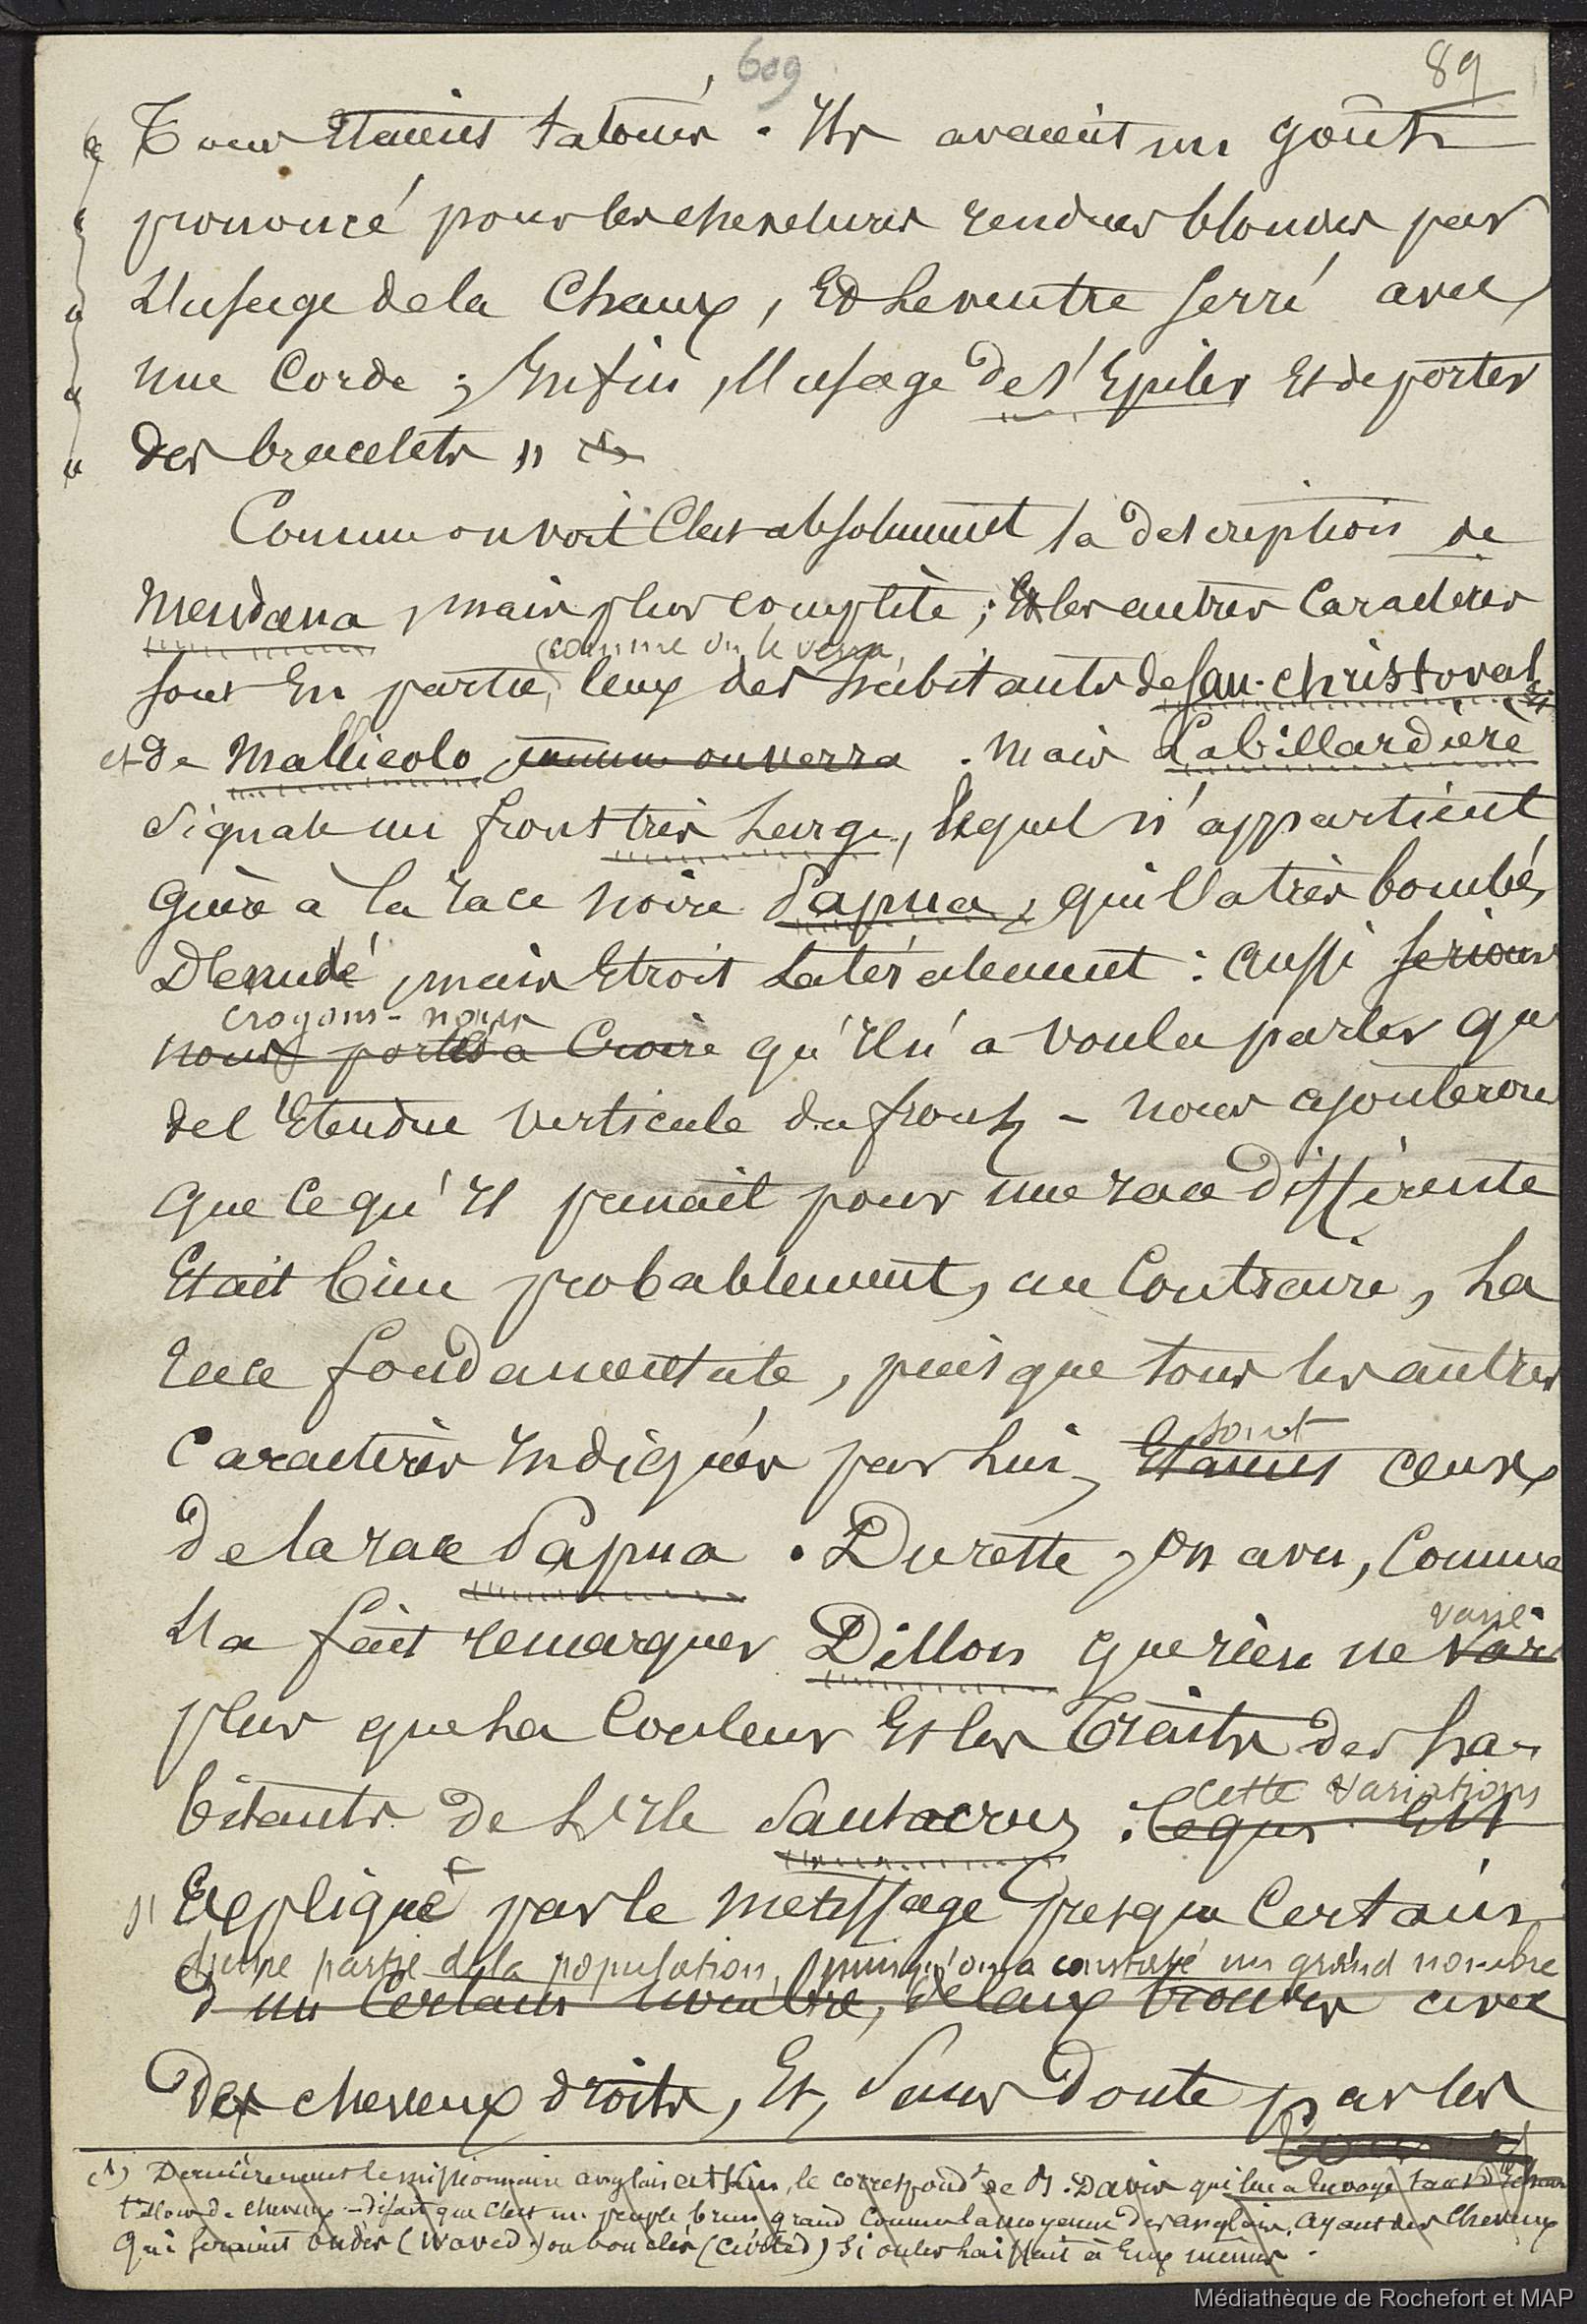 609
89
" Tous étaient tatoués. Ils avaient un goût
" prononcé pour les chevelures rendues blondes par
" l'usage de la chaux, et le ventre serré avec
" une corde ; Enfin, l'usage de s'Epiler et de porter
" des bracelets " (1)
Comme on voit C'est absolument la description de
Mendana, mais plus complète ; Et les autres Caractères
(comme on le verra)
sont En partie, ceux des habitants de San-Christoval
et de Mallicolo comme on verra. Mais Labillardière
signale un front très large, lequel n'appartient
guère à la race noire Papua, qui l'a très bombé,
Dénudé, mais Etroit Latéralement : aussi serions
croyons-nous
nous portés à Croire qu'Il n'a voulu parler que
de l'Etendue verticale du front - nous ajouterons
que ce qu'Il prenait pour une race différente
Etait bien probablement, au Contraire, La
race fondamentale, puisque tous les autres
sont
Caractères Indiqués par Lui, Etaient ceux
de la race Papua. Du reste, On a vu, Comme
varie
l'a fait remarquer Dillon que rien ne var
plus que La Couleur Et les Traits des ha-
cette variations
bitants de L'Ile Santacruz : Ce qui Est
s' Explique par le métissage presque Certain
d'une partie de la population, puisqu'on a constaté un grand nombre
d'un Certain nombre, de ceux trouvés avec
Des cheveux droits, Et, Sans Doute par les
(1) Dernièrement le missionnaire anglais Atkin, le correspondt de M. Davis qui lui a Envoyé tant d'Echan
tillons de cheveux - disait que C'est un peuple brun grand Comme la moyenne des anglais, ayant des Cheveux
Qui seraient ondés (waved) ou bouclés (curled) si on les laissait à Eux mêmes.
Médiathèque de Rochefort et MAP